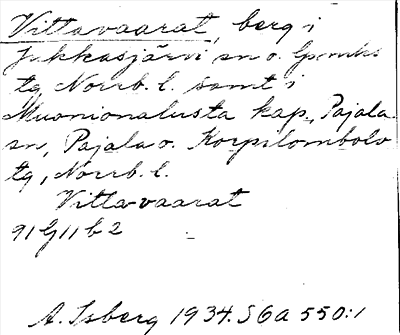 Vittavaarat, berg i
Jukkasjärvi sn o. lpmks
tg, Norrb. l. samt i
Muonionalusta kap., Pajala
sn, Pajala o. Korpilombolo
tg, Norrb. l.
Vittavaarat
91 G 11 b 2
A. Isberg 1934. S 6a 550:1